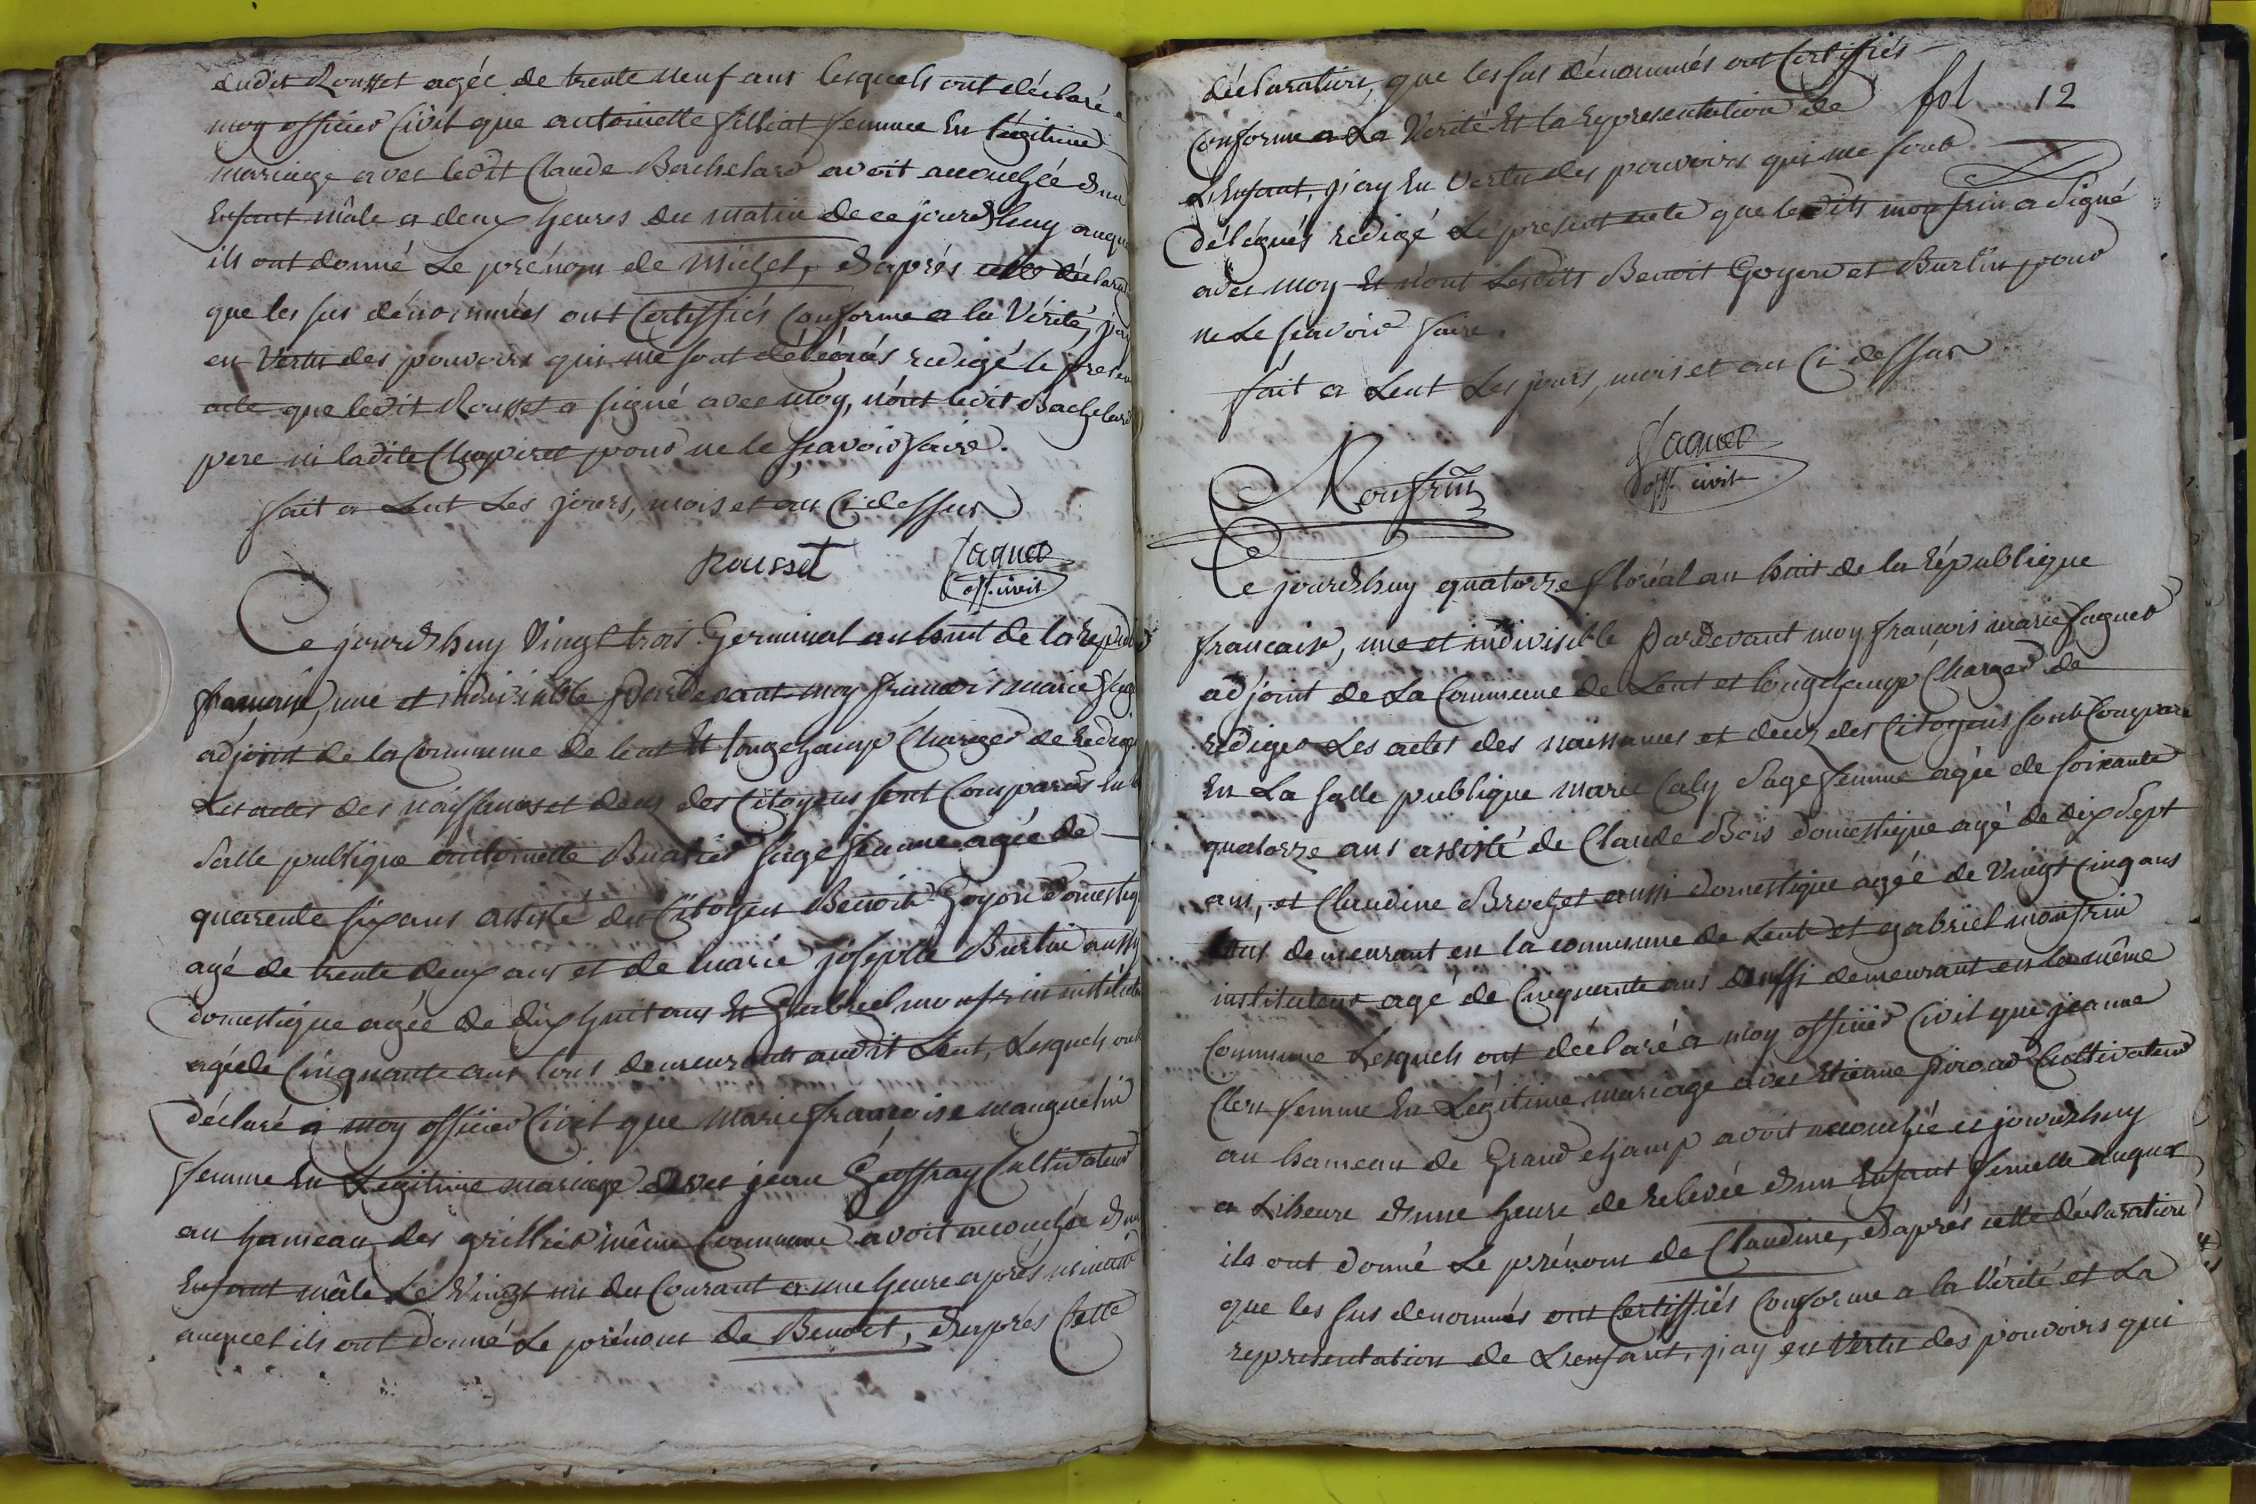 dudit Rousset agée de trente neuf ans lesquels ont déclaré a
moy officier Civil que antoinette filliat femme En légitime
mariage avec ledit Claude Bachelard avoit accouchée d'un
Enfant mâle a deux heures du matin de ce jourd'huy auquel
ils ont donné Le prénom de Michel, d'après cette déclarati
que les sus dénommées ont Certiffiés Conforme a la Vérité, j'ay
en Vertu des pouvoirs qui me sont délégués redigé le present
acte que ledit Rousset a signé avec moy, n'ont ledit Bachelard
pere ni ladite pour ne le sçavoir faire.
fait a Lent Les jours, mois et an Ci dessus
Rousset Jaguet
off. civil
Ce jourd'huy Vingt trois Germinal an huit de la Republi
française, une et indivisible pardevant moy françois marie Jagu
adjoint de la Commune de Lent Et longchamp Chargé de Rediger
Les actes des naissances et deces des Citoyens sont Comparus En la
Salle publique antoinette Buatier sage femme agée de
quarente six ans assisté du Citoyen Benoit Goyon domestiq
agé de trente deux ans et de marie josephte Burlin aussy
domestique agée de dix huit ans Et Gabriel monfrin institute
agé de Cinquante ans tous demeurants audit Lent, Lesquels ont
déclaré a moy officier Civil que marie françoise mauguelin
femme En Légitime mariage avec jean Geoffray Cultivateur
au hameau des grillied même Commune avoit accouchée d'un
Enfant mâle Le Vingt un du Courant a une heure après minuit
auquel ils ont donné Le prénom de Benoit, d'après Cette
fol 12
déclaration, que les sus dénommés ont Certiffiés
Conforme a La Vérité Et la representation de
L'Enfant, j'ay En Vertu des pouvoirs qui me sont
délégués redigé Le present acte que ledits monfrin a Signé
avec moy Et n'ont Lesdits Benoit Goyon et Burlin pour
ne Le sçavoir faire.
fait a Lent Les jours, mois et an Ci dessus
Monfrin Jaguet
off. civil
Ce jourd'huy quatorze floréal an huit de la République
française, une et indivisible pardevant moy françois marie Jaguet
adjoint de La Commune de Lent et longchamp Chargé de
rediger Les actes des naissances et deces des Citoyens sont Comparu
En La Salle publique marie Caly Sage femme agée de soixante
quatorze ans assisté de Claude Bois domestique agé de dix Sept
ans, et Claudine Brochet aussi domestique agée de Vingt Cinq ans
tous demeurant en la commune de Lent et gabriel monfrin
instituteur agé de Cinquante ans aussi demeurant en la même
Commune Lesquels ont déclaré a moy officier Civil que jeanne
Clerc femme En Légitime mariage avec Etienne Piroud Cultivateur
au hameau de Grand champ avoit accouchée ce jourd'huy
a L'heure d'une heure de relevée d'un Enfant femelle auquel
ils ont donné Le prénom de Claudine, d'après cette déclaration
que les sus denommés ont Certiffiés Conforme a la Vérité et La
representation de L'enfant, j'ay en Vertu des pouvoirs qui